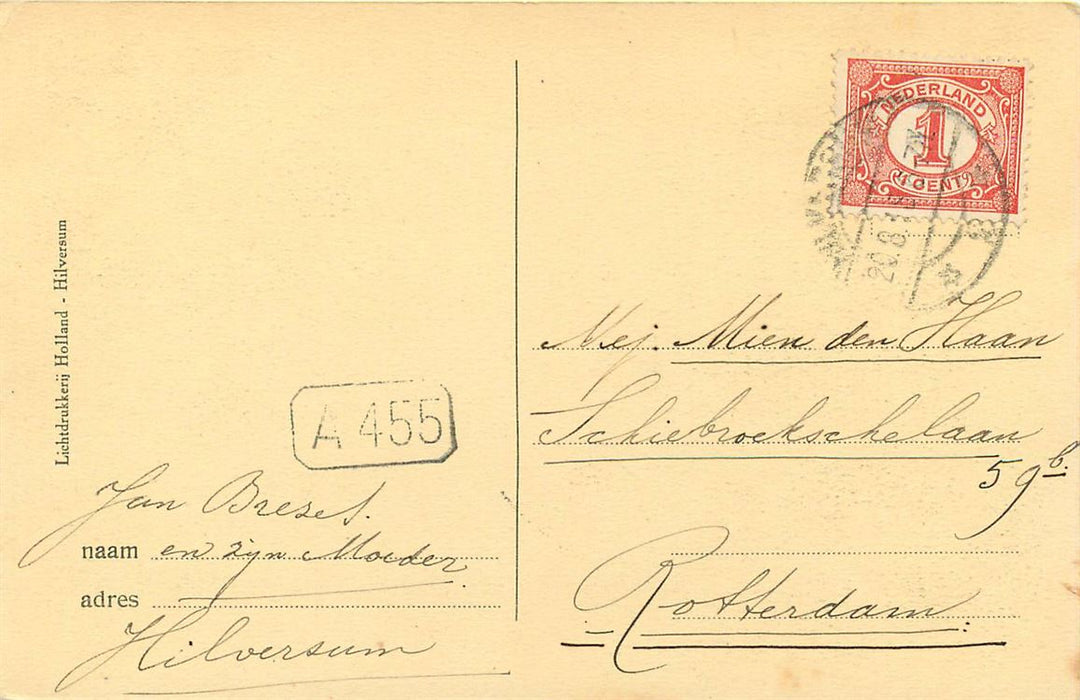 Lichtdrukkerij Holland - Hilversum
A 455
Jan Breset.
naam en zijn Moeder
adres
Hilversum
NEDERLAND
1
CENT
20.8
Mej. Mien den Haan
Schiebroekschelaan
59b.
Rotterdam.